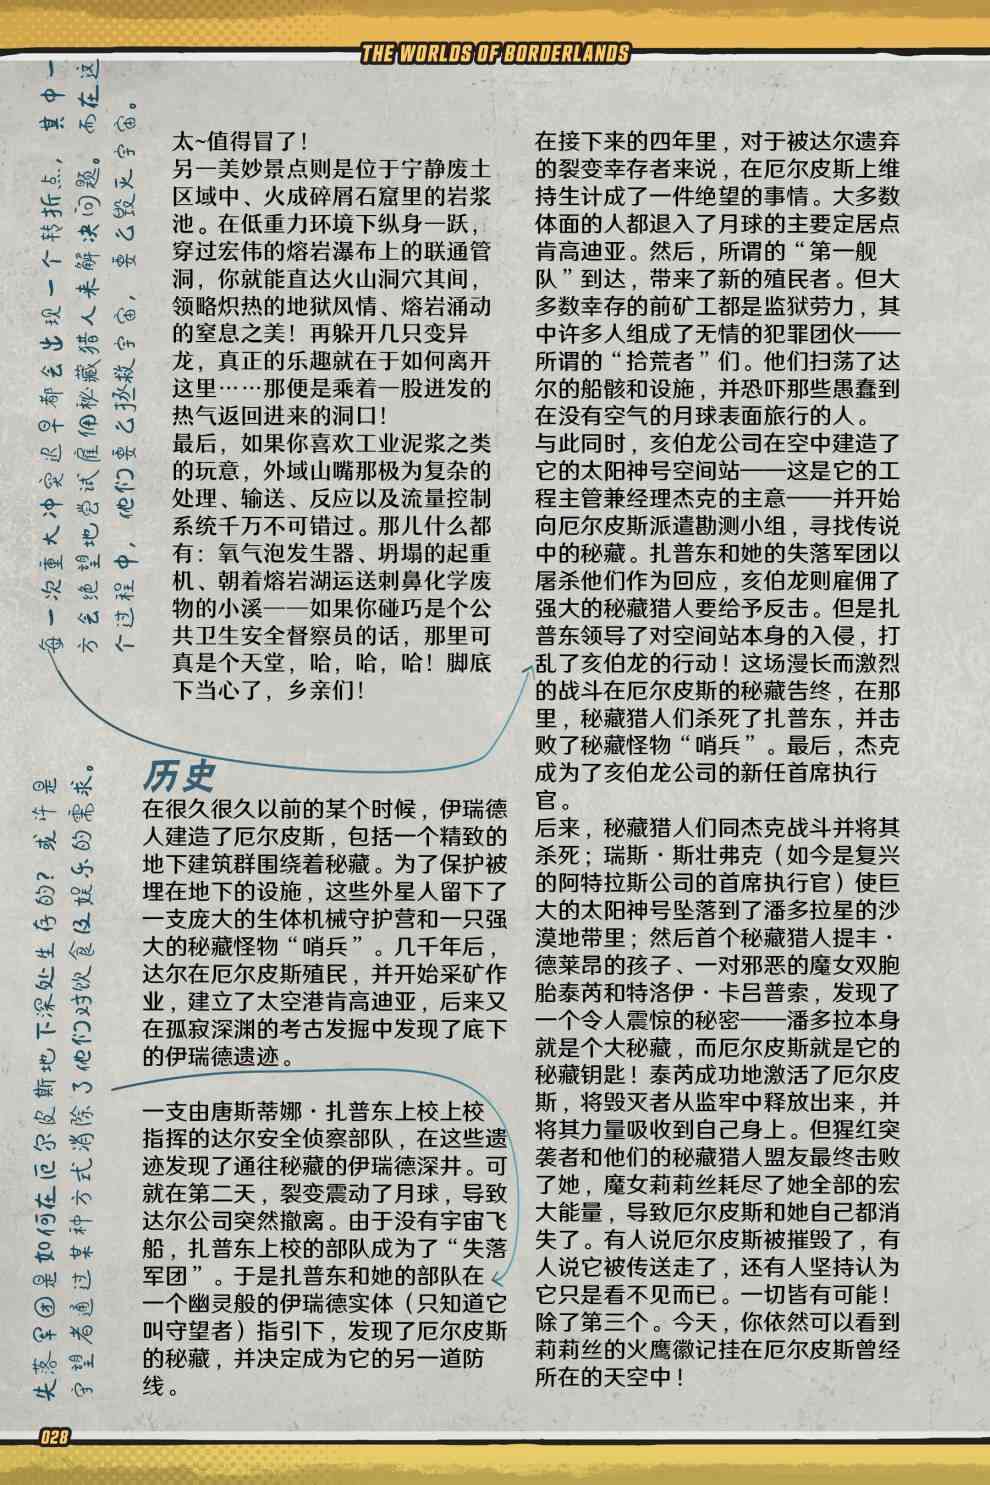 THE WORLDS OF BORDERLANDS
每一次重大冲突迟早都会出现一个转折点，其中一
方会绝望地尝试雇佣秘藏猎人来解决问题。而在这
个过程中，他们要么拯救宇宙，要么毁灭宇宙。
太~值得冒了！
另一美妙景点则是位于宁静废土
区域中、火成碎屑石窟里的岩浆
池。在低重力环境下纵身一跃，
穿过宏伟的熔岩瀑布上的联通管
洞，你就能直达火山洞穴其间，
领略炽热的地狱风情、熔岩涌动
的窒息之美！再躲开几只变异
龙，真正的乐趣就在于如何离开
这里……那便是乘着一股迸发的
热气返回进来的洞口！
最后，如果你喜欢工业泥浆之类
的玩意，外域山嘴那极为复杂的
处理、输送、反应以及流量控制
系统千万不可错过。那儿什么都
有：氧气泡发生器、坍塌的起重
机、朝着熔岩湖运送刺鼻化学废
物的小溪——如果你碰巧是个公
共卫生安全督察员的话，那里可
真是个天堂，哈，哈，哈！脚底
下当心了，乡亲们！
失落军团是如何在厄尔皮斯地下深处生存的？或许是
守望者通过某种方式消除了他们对饮食及娱乐的需求。
历史
在很久很久以前的某个时候，伊瑞德
人建造了厄尔皮斯，包括一个精致的
地下建筑群围绕着秘藏。为了保护被
埋在地下的设施，这些外星人留下了
一支庞大的生体机械守护营和一只强
大的秘藏怪物“哨兵”。几千年后，
达尔在厄尔皮斯殖民，并开始采矿作
业，建立了太空港肯高迪亚，后来又
在孤寂深渊的考古发掘中发现了底下
的伊瑞德遗迹。
一支由唐斯蒂娜·扎普东上校上校
指挥的达尔安全侦察部队，在这些遗
迹发现了通往秘藏的伊瑞德深井。可
就在第二天，裂变震动了月球，导致
达尔公司突然撤离。由于没有宇宙飞
船，扎普东上校的部队成为了“失落
军团”。于是扎普东和她的部队在
一个幽灵般的伊瑞德实体（只知道它
叫守望者）指引下，发现了厄尔皮斯
的秘藏，并决定成为它的另一道防
线。
在接下来的四年里，对于被达尔遗弃
的裂变幸存者来说，在厄尔皮斯上维
持生计成了一件绝望的事情。大多数
体面的人都退入了月球的主要定居点
肯高迪亚。然后，所谓的“第一舰
队”到达，带来了新的殖民者。但大
多数幸存的前矿工都是监狱劳力，其
中许多人组成了无情的犯罪团伙——
所谓的“拾荒者”们。他们扫荡了达
尔的船骸和设施，并恐吓那些愚蠢到
在没有空气的月球表面旅行的人。
与此同时，亥伯龙公司在空中建造了
它的太阳神号空间站——这是它的工
程主管兼经理杰克的主意——并开始
向厄尔皮斯派遣勘测小组，寻找传说
中的秘藏。扎普东和她的失落军团以
屠杀他们作为回应，亥伯龙则雇佣了
强大的秘藏猎人要给予反击。但是扎
普东领导了对空间站本身的入侵，打
乱了亥伯龙的行动！这场漫长而激烈
的战斗在厄尔皮斯的秘藏告终，在那
里，秘藏猎人们杀死了扎普东，并击
败了秘藏怪物“哨兵”。最后，杰克
成为了亥伯龙公司的新任首席执行
官。
后来，秘藏猎人们同杰克战斗并将其
杀死；瑞斯·斯壮弗克（如今是复兴
的阿特拉斯公司的首席执行官）使巨
大的太阳神号坠落到了潘多拉星的沙
漠地带里；然后首个秘藏猎人提丰·
德莱昂的孩子、一对邪恶的魔女双胞
胎泰芮和特洛伊·卡吕普索，发现了
一个令人震惊的秘密——潘多拉本身
就是个大秘藏，而厄尔皮斯就是它的
秘藏钥匙！泰芮成功地激活了厄尔皮
斯，将毁灭者从监牢中释放出来，并
将其力量吸收到自己身上。但猩红突
袭者和他们的秘藏猎人盟友最终击败
了她，魔女莉莉丝耗尽了她全部的宏
大能量，导致厄尔皮斯和她自己都消
失了。有人说厄尔皮斯被摧毁了，有
人说它被传送走了，还有人坚持认为
它只是看不见而已。一切皆有可能！
除了第三个。今天，你依然可以看到
莉莉丝的火鹰徽记挂在厄尔皮斯曾经
所在的天空中！
028